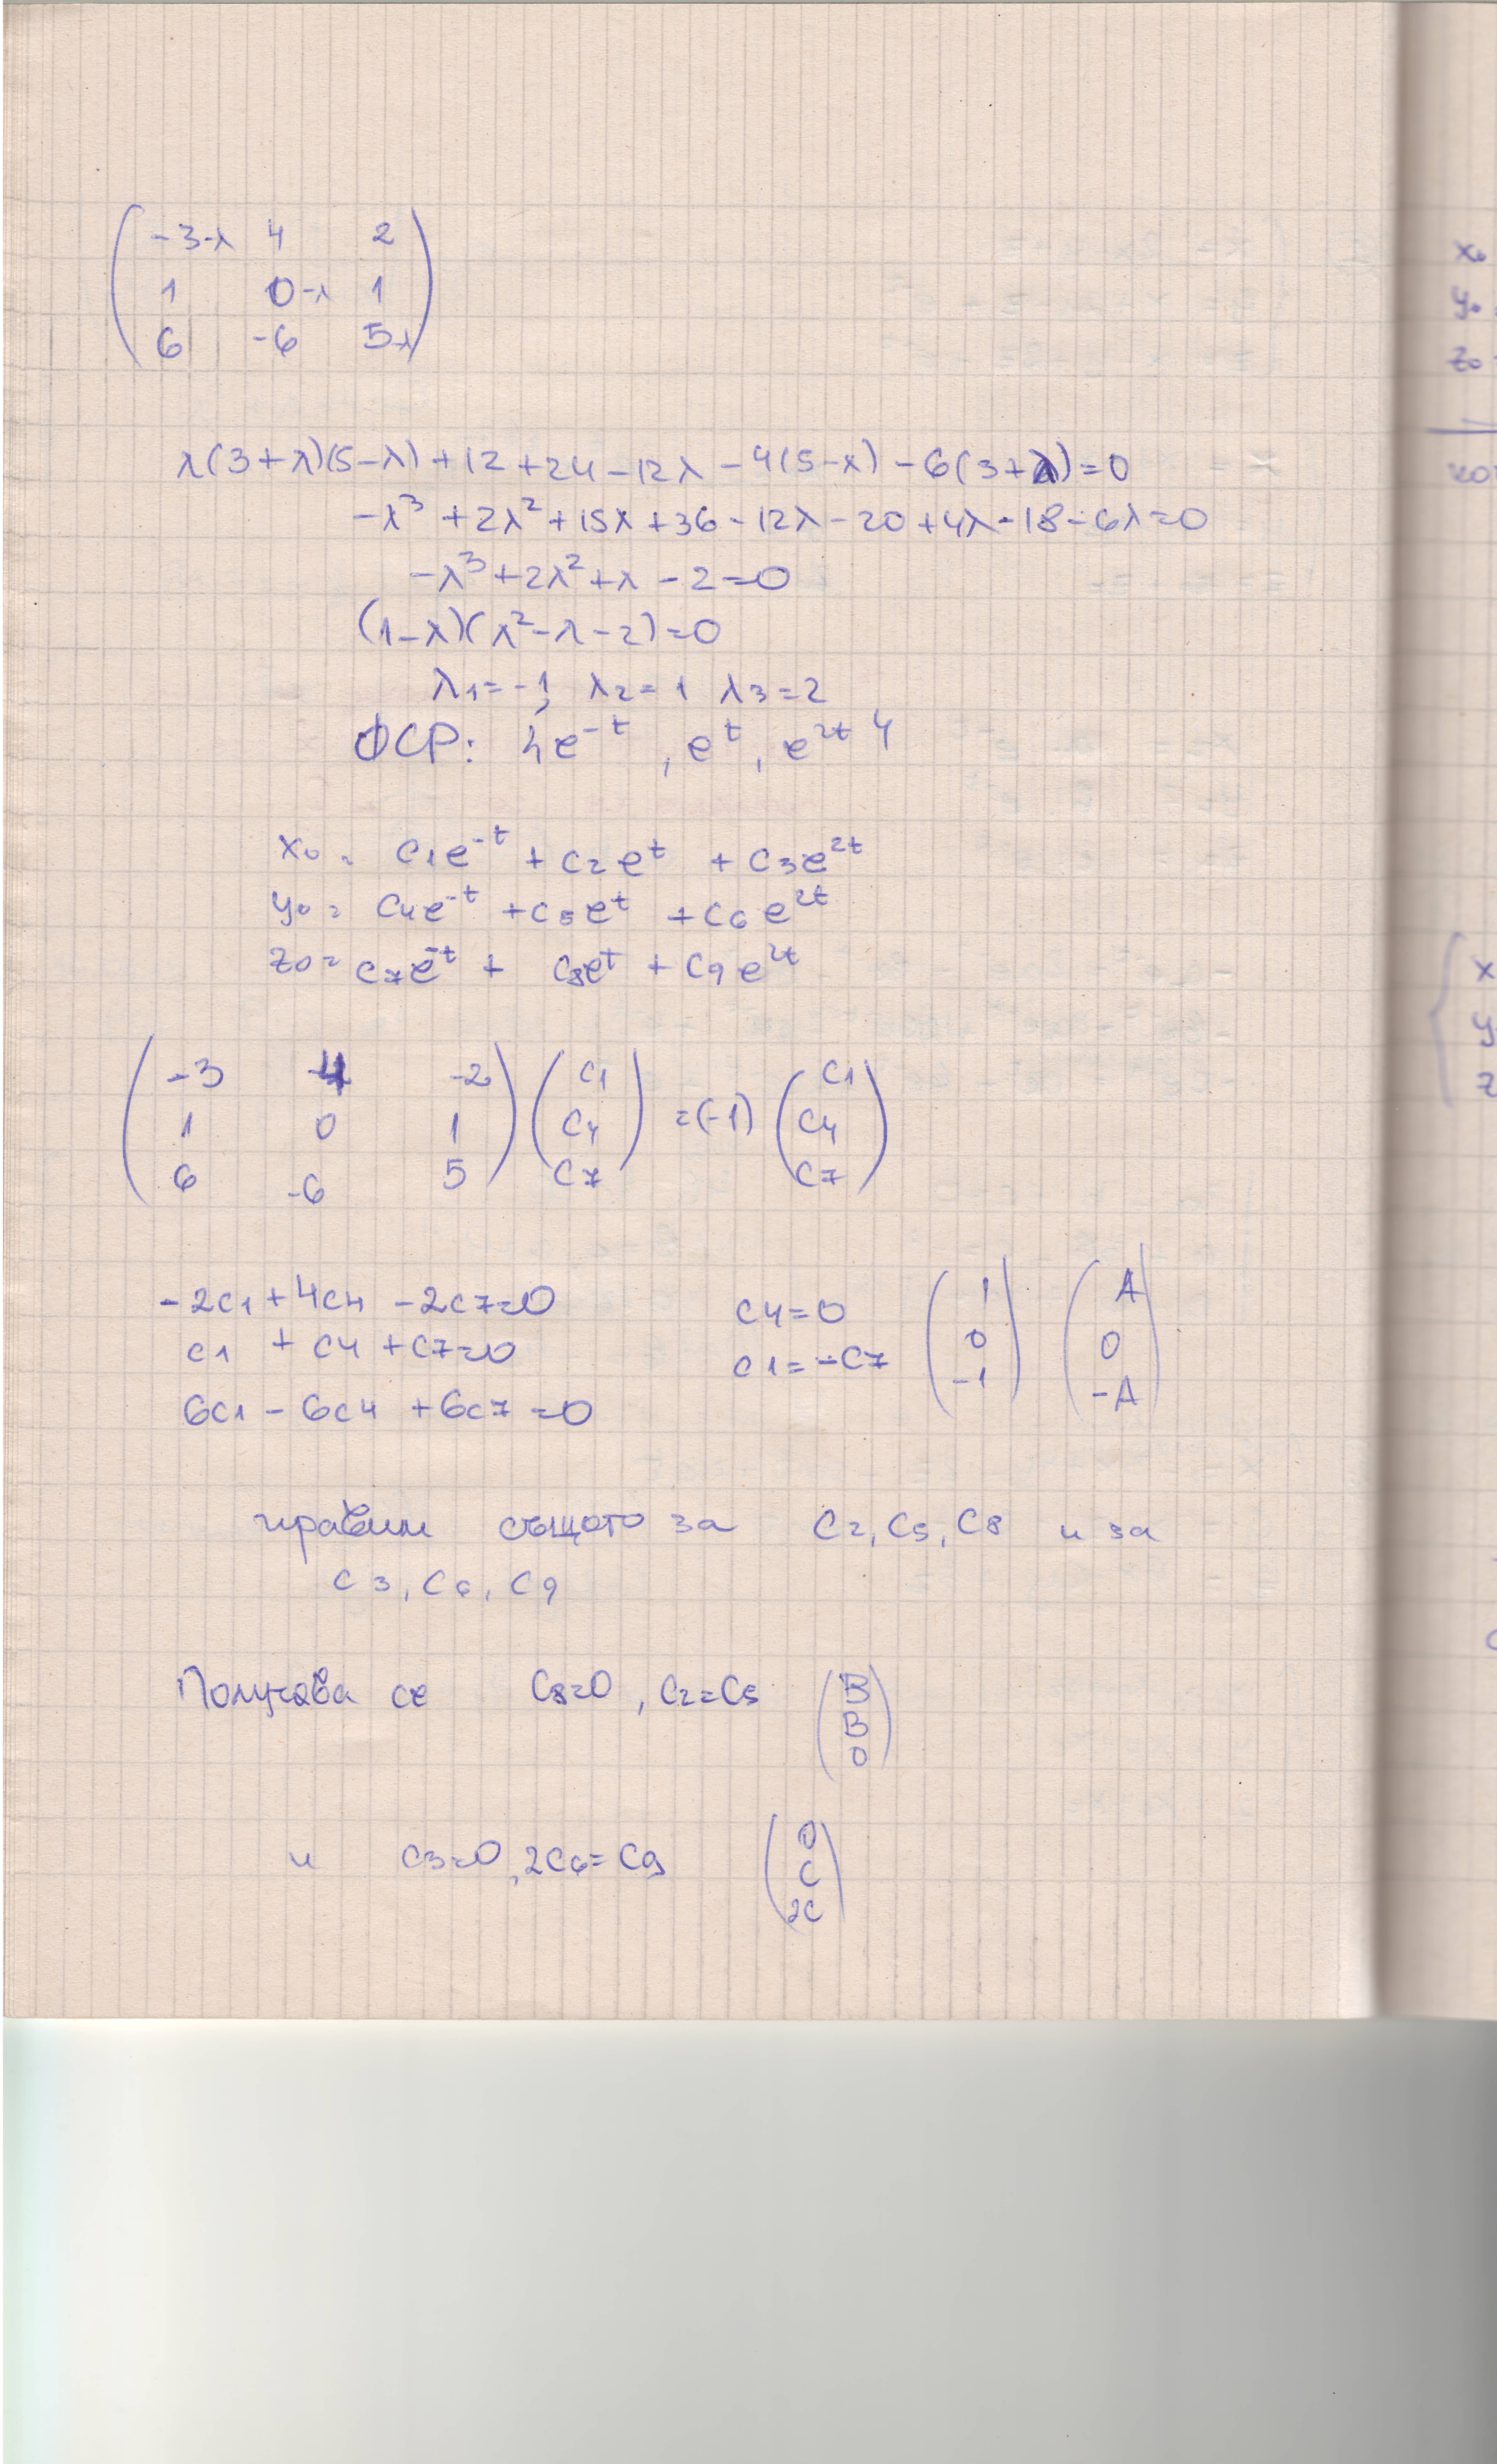 ( -3-λ 4 2 )
( 1 0-λ 1 )
( 6 -6 5-λ )
λ(3+λ)(5-λ)+12+24-12λ-4(5-λ)-6(3+λ)=0
-λ³+2λ²+15λ+36-12λ-20+4λ-18-6λ=0
-λ³+2λ²+λ-2=0
(1-λ)(λ²-λ-2)=0
λ1=-1, λ2=1 λ3=2
ФСР: {e^-t, e^t, e^2t}
x0 = c1e^-t + c2e^t + c3e^2t
y0 = c4e^-t + c5e^t + c6e^2t
z0 = c7e^-t + c8e^t + c9e^2t
( -3 4 -2 ) ( c1 ) =(-1) ( c1 )
( 1 0 1 ) ( c4 ) ( c4 )
( 6 -6 5 ) ( c7 ) ( c7 )
-2c1+4c4-2c7=0
c1+c4+c7=0
6c1-6c4+6c7=0
c4=0
c1=-c7
( 1 ) ( A )
( 0 ) ( 0 )
( -1 ) ( -A )
правим същото за c2, c5, c8 и за
c3, c6, c9
Получава се c8=0, c2=c5
( B )
( B )
( 0 )
и c3=0, 2c6=c9
( 0 )
( C )
( 2C )
x0
y0
z0
x
y
z